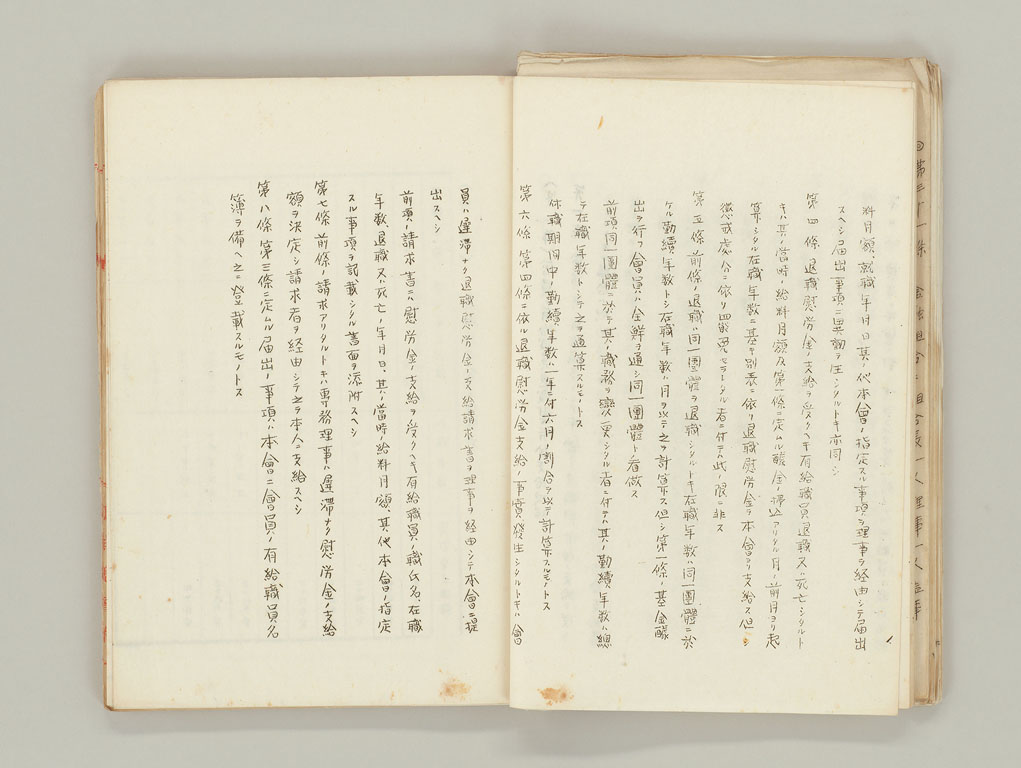 料月額、就職年月日其ノ他本會ノ指定スル事項ヲ理事ヲ経由シテ届出
スヘシ届出事項ニ異動ヲ生シタルトキ亦同シ
第四條 退職慰労金ノ支給ヲ受クヘキ有給職員退職又ハ死亡シタルト
キハ其ノ當時ノ給料月額及第一條ニ定ムル醵金ノ拂込アリタル月ノ前月ヨリ起
算シタル在職年数ニ基キ別表ニ依リ退職慰労金ヲ本會ヨリ支給ス但シ
懲戒處分ニ依リ罷免セラレタル者ニ付テハ此ノ限ニ非ス
第五條 前條ノ退職ハ同一團體ヲ退職シタルトキ在職年数ハ同一團體ニ於
ケル勤續年数トシ在職年数ハ月ヲ以テ之ヲ計算ス但シ第一條ノ基金醵
出ヲ行フ會員ハ全鮮ヲ通シ同一團體ト看做ス
前項同一團體ニ於テ其ノ職務ヲ變更シタル者ニ付テハ其ノ勤續年数ハ總
テ在職年数トシテ之ヲ通算スルモノトス
休職期間中ノ勤續年数ハ一年ニ付六月ノ割合ヲ以テ計算スルモノトス
第六條 第四條ニ依ル退職慰労金支給ノ事實發生シタルトキハ會
員ハ遅滞ナク退職慰労金ノ支給請求書ヲ理事ヲ経由シテ本會ニ提
出スヘシ
前項ノ請求書ニハ慰労金ノ支給ヲ受クヘキ有給職員ノ職氏名、在職
年数、退職又ハ死亡ノ年月日、其ノ當時ノ給料月額、其他本會ノ指定
スル事項ヲ記載シタル書面ヲ添附スヘシ
第七條 前條ノ請求アリタルトキハ専務理事ハ遅滞ナク慰労金ノ支給
額ヲ決定シ請求者ヲ経由シテ之ヲ本人ニ支給スヘシ
第八條 第三條ニ定ムル届出ノ事項ハ本會ニ會員ノ有給職員名
簿ヲ備ヘ之ニ登載スルモノトス